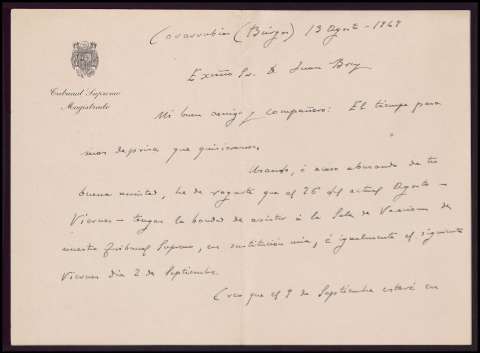 Covarrubias (Burgos) 13 Agosto - 1949
Tribunal Supremo
Magistrado
Excmo Sr. D. Juan Bo
Mi buen amigo y compañero: El tiempo pasa
mas deprisa que quisieramos.
Usando, ó acaso abusando de tu
buena amistad, he de rogarte que el 26 del actual Agosto -
Viernes - tengas la bondad de asistir á la Sala de Vacaciones de
nuestro Tribunal Supremo, en sustitución mia, é igualmente el siguiente
Viernes dia 2 de Septiembre.
Creo que el 9 de Septiembre estaré en